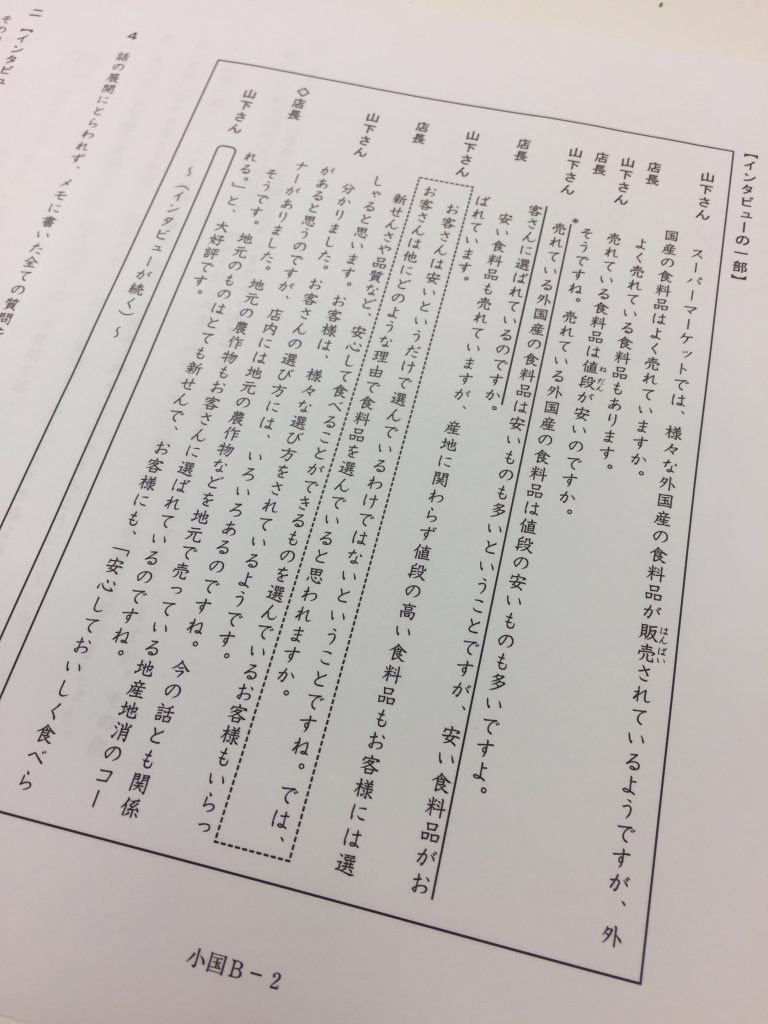 【インタビューの一部】
山下さん　スーパーマーケットでは、様々な外国産の食料品が販売されているようですが、外
はんばい
国産の食料品はよく売れていますか。
店長　よく売れている食料品もあります。
山下さん　売れている食料品は値段が安いのですか。
ねだん
店長　*そうですね。売れている外国産の食料品は値段の安いものも多いですよ。
山下さん　売れている外国産の食料品は安いものも多いということですが、安い食料品がお
客さんに選ばれているのですか。
店長　安い食料品も売れていますが、産地に関わらず値段の高い食料品もお客様には選
ばれています。
山下さん　お客さんは安いというだけで選んでいるわけではないということですね。では、
お客さんは他にどのような理由で食料品を選んでいると思われますか。
店長　新せんさや品質など、安心して食べることができるものを選んでいるお客様もいらっ
しゃると思います。お客様は、様々な選び方をされているようです。
山下さん　分かりました。お客さんの選び方には、いろいろあるのですね。今の話とも関係
があると思うのですが、店内には地元の農作物などを地元で売っている地産地消のコー
ナーがありました。地元の農作物もお客さんに選ばれているのですね。
◇店長　そうです。地元のものはとても新せんで、お客様にも、「安心しておいしく食べら
れる。」と、大好評です。
山下さん
～（インタビューが続く）～
4　話の展開にとらわれず、メモに書いた全ての質問
二　【インタビュ
小国B－2